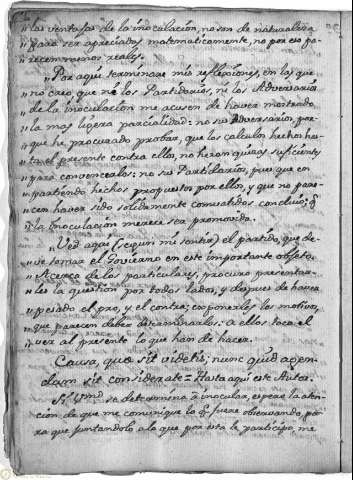 "las ventajas de la inoculacion, no son de naturaleza
"para ser apreciadas matematicamente, no por eso pa-
recen menos reales.
"Por aqui terminare mis reflexiones, en las que
"no creo que ni los Partidarios, ni los Adversarios
"de la inoculacion me acusen de haver mostrado
"la mas ligera parcialidad: no sus Adversarios, por-
que he procurado probar, que los calculos hechos has-
ta el presente contra ellos, no heran quizas suficientes
"para convencerlos: no sus Partidarios, pues que en
"partiendo hechos propuestos por ellos, y que no pare-
cen haver sido solidamente combatidos concluio; q
"la inoculacion merece ser promovida.
"Ved aqui (segun mi sentir) el partido, que de-
ve tomar el Govierno en este importante objeto.
"Acerca de los particulares, procuro presentar-
les la question por todos lados, y despues de haver
"pesado el pro, y el contra, exponerles los motivos,
"que parecen deber determinarlos: a ellos toca el
"ver al presente lo que han de hacer.
Causa, quæ sit videtis; nunc quid agen-
dum sit considerate = Hasta aqui este Autor.
Si Vmd se determina à inocular, espero la aten-
cion de que me comunique lo q.e fuere observando, pa-
ra que juntandolo a lo que por esta le participo, me